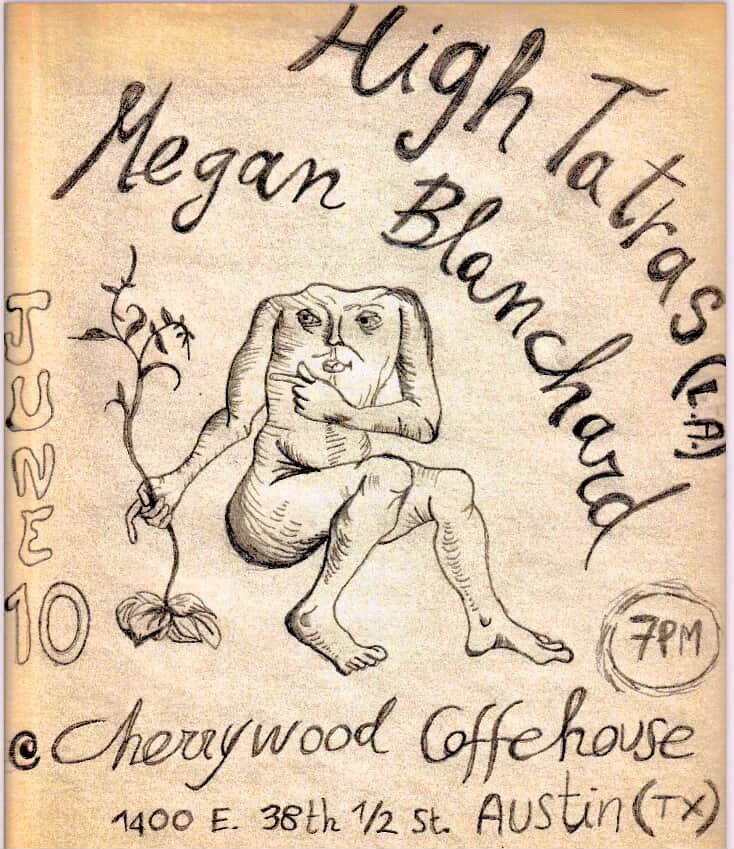 High Tatras (L.A.)
Megan Blanchard
JUNE 10
7PM
@ Cherrywood Coffehouse
1400 E. 38th 1/2 St. AUSTIN (TX)